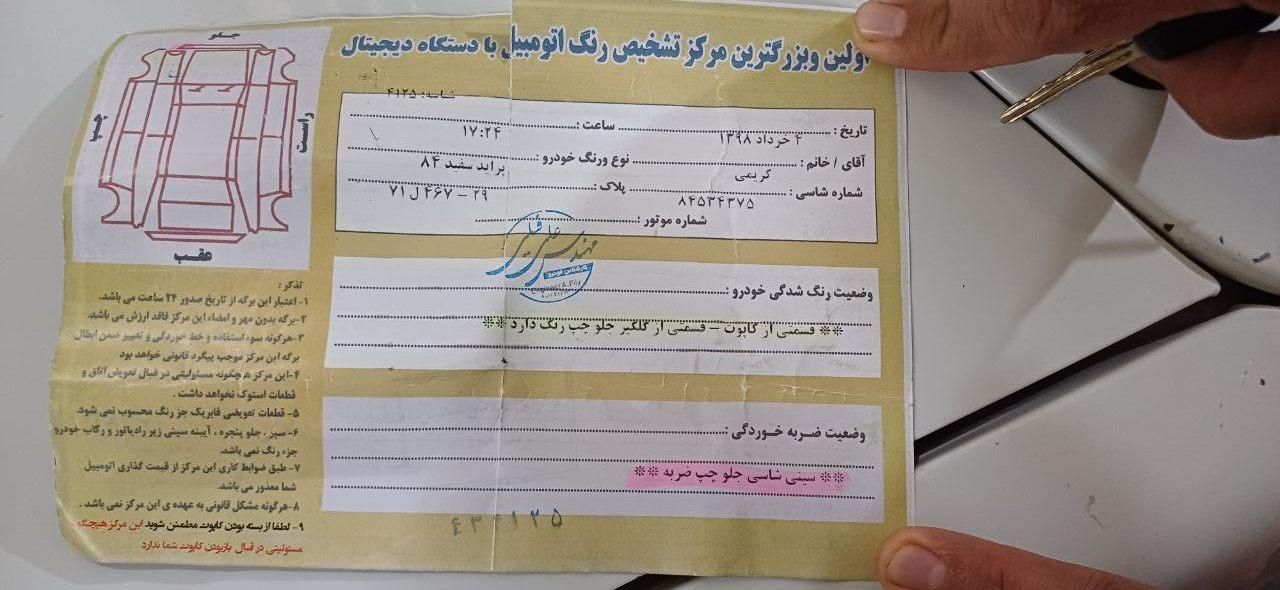 اولین وبزرگترین مرکز تشخیص رنگ اتومبیل با دستگاه دیجیتال
شناسه: ۴۱۲۵
تاریخ : ۴ خرداد ۱۳۹۸ ساعت : ۱۷:۲۴
آقای / خانم : کریمی نوع ورنگ خودرو : پراید سفید ۸۴
شماره شاسی : ۸۴۵۳۴۳۷۵ پلاک : ۲۹ - ۴۶۷ ل ۷۱
شماره موتور :
مهندس علی فیلی
کارشناس خودرو
وضعیت رنگ شدگی خودرو :
** قسمتی از کاپوت - قسمتی از گلگیر جلو چپ رنگ دارد **
وضعیت ضربه خوردگی :
** سینی شاسی جلو چپ ضربه **
جلو
چپ
راست
عقب
تذکر :
۱- اعتبار این برگه از تاریخ صدور ۲۴ ساعت می باشد.
۲- برگه بدون مهر و امضاء این مرکز فاقد ارزش می باشد.
۳- هرگونه سوء استفاده و خط خوردگی و تغییر ضمن ابطال
برگه این مرکز موجب پیگرد قانونی خواهد بود
۴- این مرکز هیچگونه مسئولیتی در قبال تعویض اتاق و
قطعات استوک نخواهد داشت .
۵- قطعات تعویضی فابریک جز رنگ محسوب نمی شود.
۶- سپر ، جلو پنجره ، آیینه سینی زیر رادیاتور و رکاب خودرو
جزء رنگ نمی باشد.
۷- طبق ضوابط کاری این مرکز از قیمت گذاری اتومبیل
شما معذور می باشد.
۸- هرگونه مشکل قانونی به عهده ی این مرکز نمی باشد .
۹- لطفا از بسته بودن کاپوت مطمئن شوید این مرکز هیچگونه
مسئولیتی در قبال بازبودن کاپوت شما ندارد